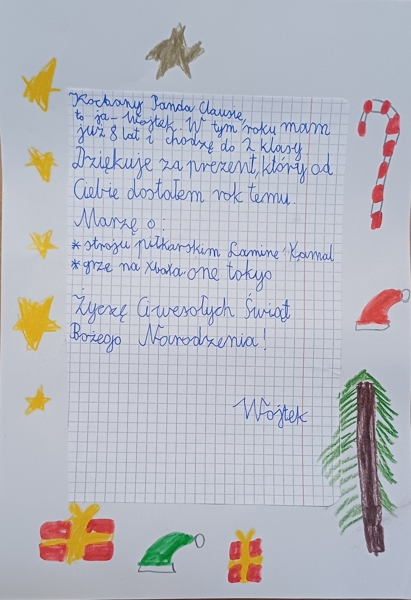 Kochany Panda Clausie,
to ja - Wojtek. W tym roku mam
już 8 lat i chodzę do 2 klasy
Dziękuje za prezent, który od
Ciebie dostałem rok temu.
Marzę o:
* stroju piłkarskim Lamine Kamal
* grze na xboxa one tokyo
Życzę Ci wesołych Świąt
Bożego Narodzenia!
Wojtek